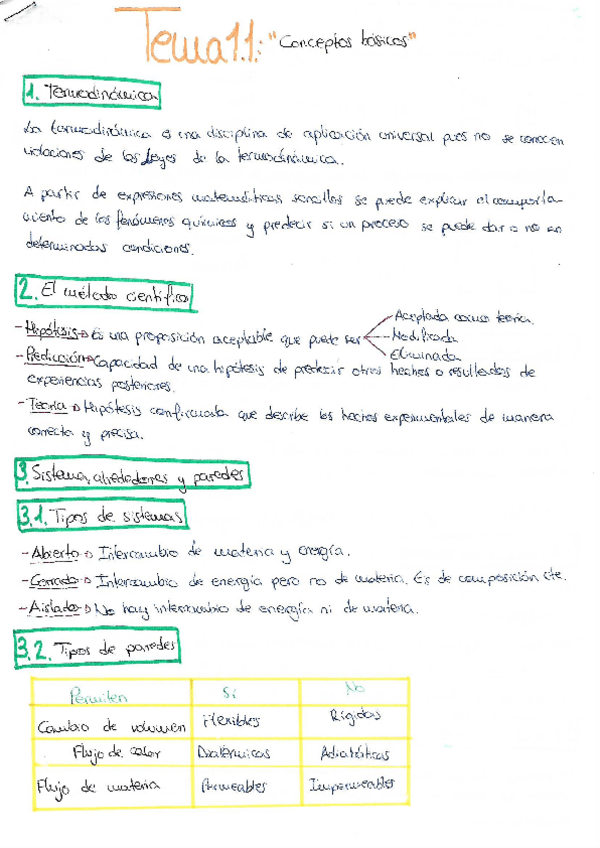 Tema 1.1: "Conceptos básicos"
1. Termodinámica
La termodinámica es una disciplina de aplicación universal pues no se conocen
violaciones de las leyes de la termodinámica.
A partir de expresiones matemáticas sencillas se puede explicar el comporta-
miento de los fenómenos químicos y predecir si un proceso se puede dar o no en
determinadas condiciones.
2. El método científico
- Hipótesis → Es una proposición aceptable que puede ser
Aceptada como teoría.
Modificada
Eliminada
- Predicción → Capacidad de una hipótesis de predecir otros hechos o resultados de
experiencias posteriores.
- Teoría → Hipótesis confirmada que describe los hechos experimentales de manera
correcta y precisa.
3. Sistema, alrededores y paredes
3.1. Tipos de sistemas
- Abierto → Intercambio de materia y energía.
- Cerrado → Intercambio de energía pero no de materia. Es de composición cte.
- Aislado → No hay intercambio de energía ni de materia.
3.2. Tipos de paredes
Permiten Sí No
Cambio de volumen Flexibles Rígidas
Flujo de calor Diatérmicas Adiabáticas
Flujo de materia Permeables Impermeables